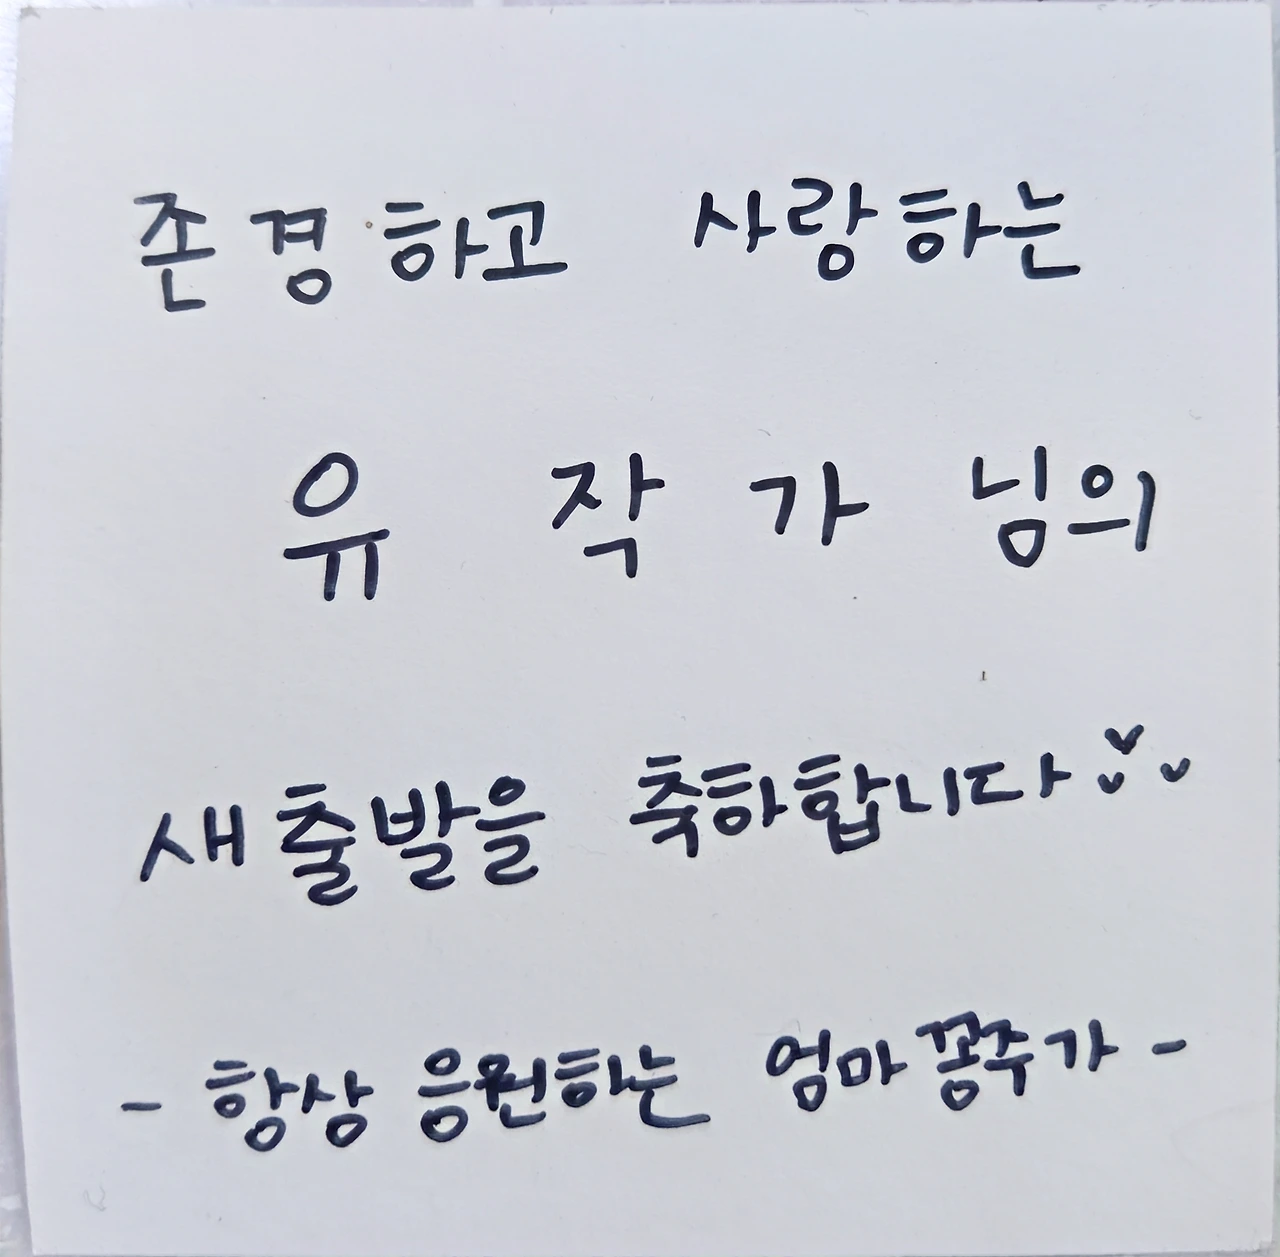 존경하고 사랑하는
유 작가님의
새출발을 축하합니다
- 항상 응원하는 엄마 꽁주가 -